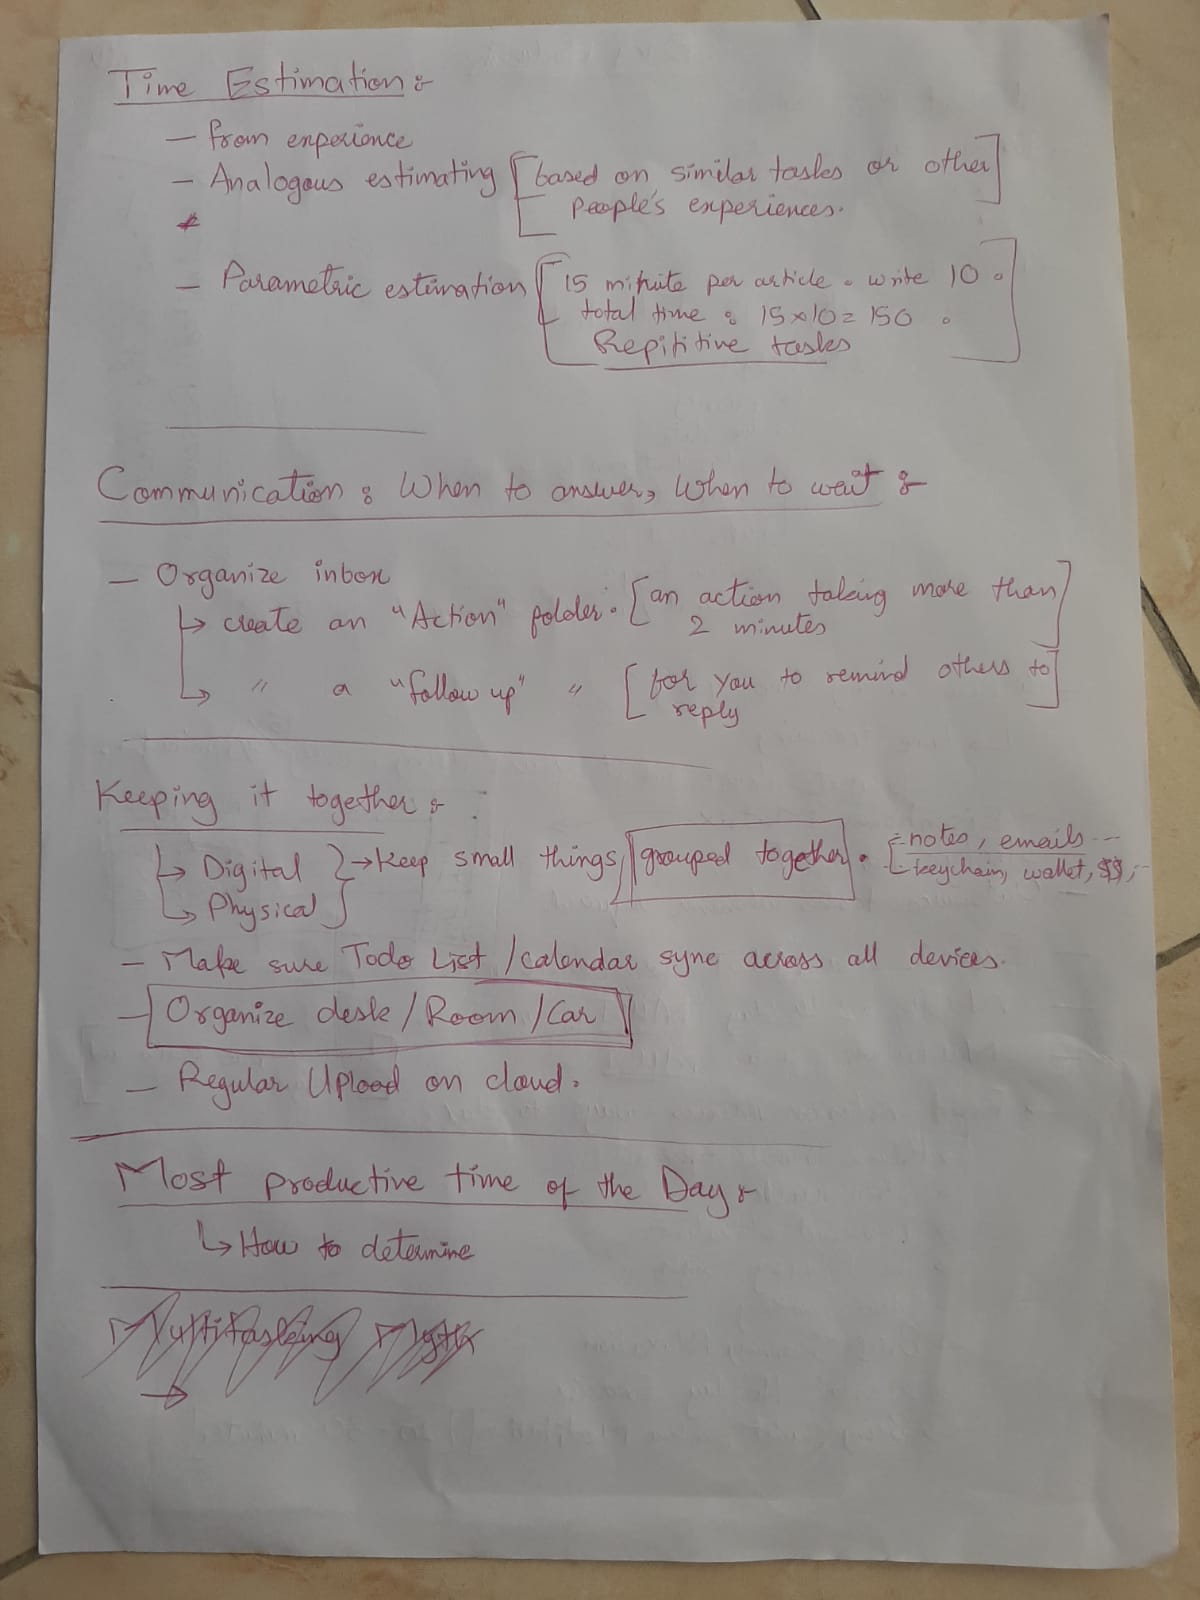 Time Estimation :-
— from experience
— Analogous estimating [based on similar tasks or other]
people's experiences.
— Parametric estimation [15 minute per article. write 10.
total time : 15×10 = 150.
Repititive tasks]
Communication : When to answer, When to wait :-
— Organize inbox
↳ create an "Action" folder. [an action taking more than
2 minutes]
↳ " a "follow up" " [for you to remind others to
reply]
Keeping it together :-
↳ Digital } → Keep small things, grouped together. [- notes, emails --
↳ Physical - keychain, wallet, $$, --
— Make sure Todo List / calendar sync across all devices.
— Organize desk / Room / Car
— Regular Upload on cloud.
Most productive time of the Day :-
↳ How to determine
Multitasking Myth
→